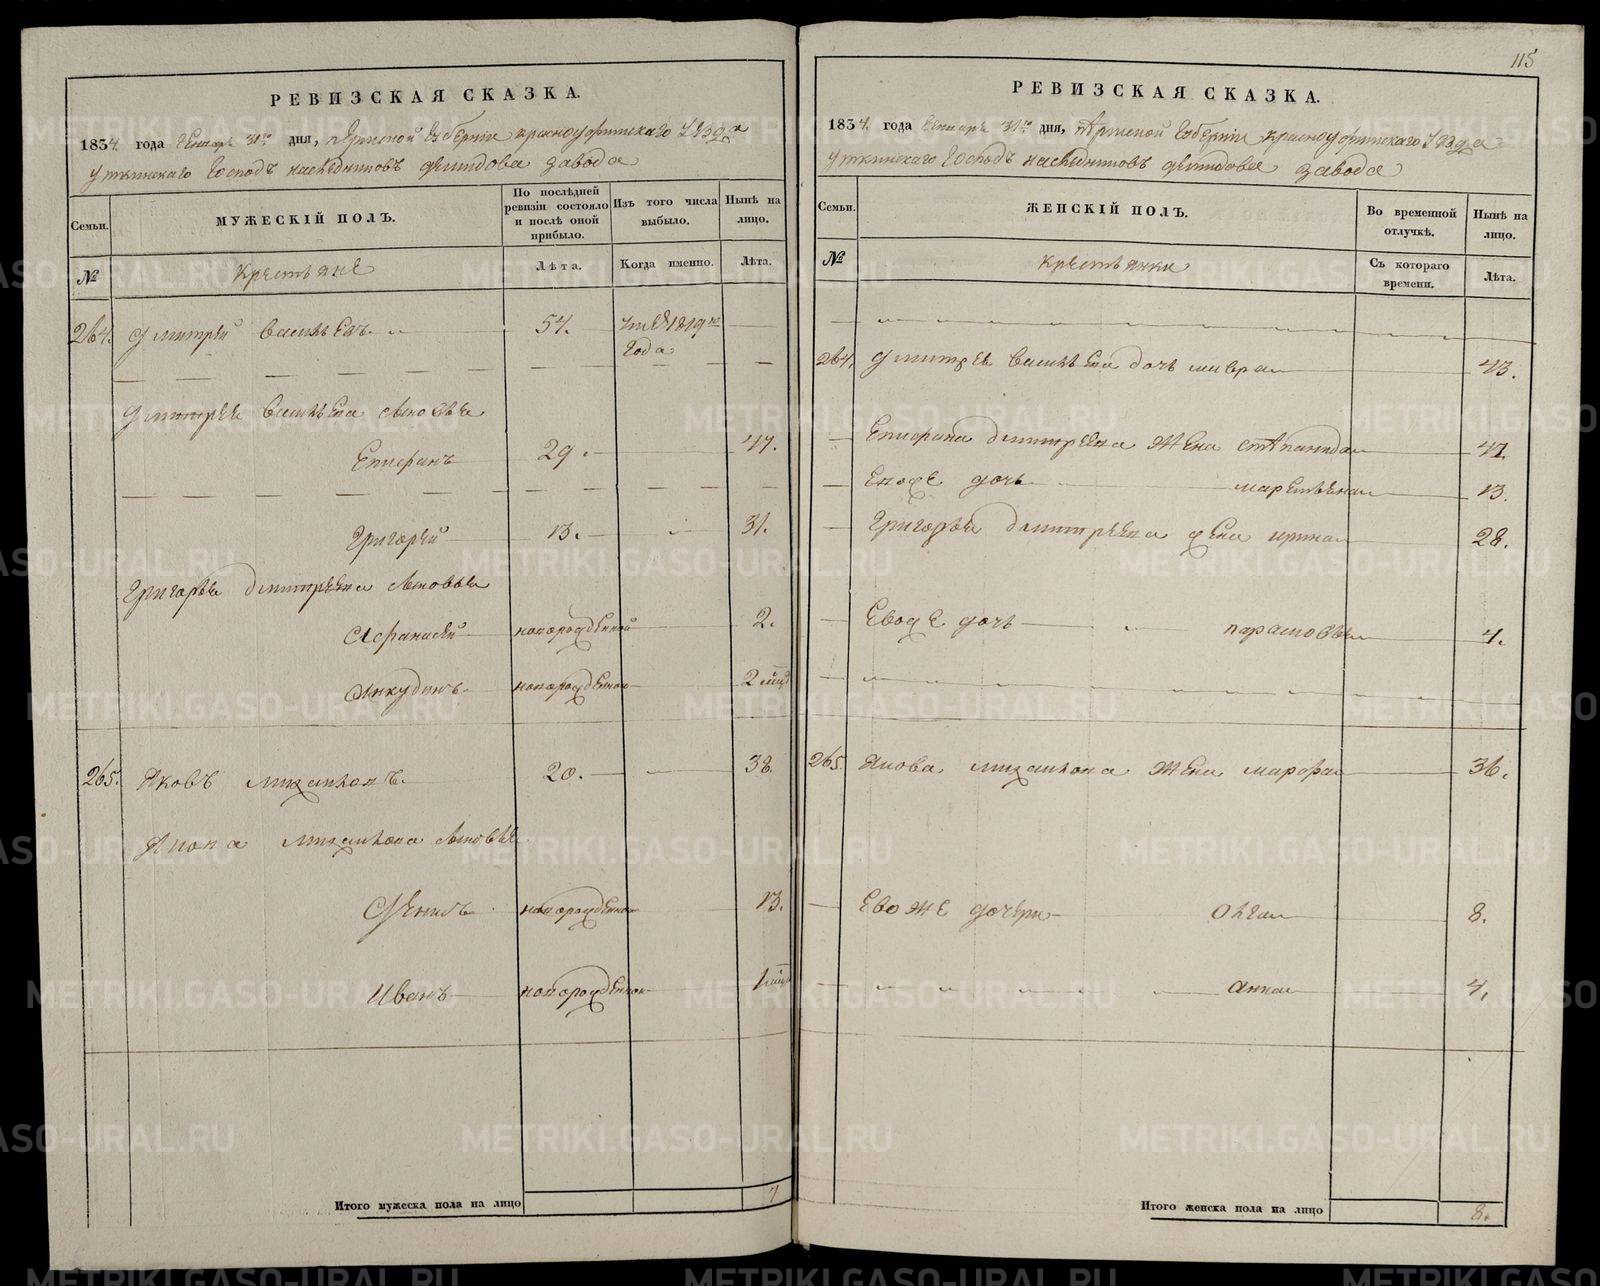 115
РЕВИЗСКАЯ СКАЗКА.
1834. года Генваря 31го дня, Пермской Губернии Красноуфимскаго Уезда
Уткинскаго Господъ наследниковъ Демидова завода
Семьи.
МУЖЕСКІЙ ПОЛЪ.
По послѣдней ревизіи состояло и послѣ оной прибыло.
Изъ того числа выбыло.
Нынѣ на лицо.
№
Крестьяне
Лѣта.
Когда именно.
Лѣта.
264. Дмитрей Васильевъ 54. 1819го
года
Дмитрея Васильева сыновья
Епифанъ 29. 47.
Григорей 13. 31.
Григорья Дмитреева сыновья
Афанасей новорожденной 2.
Анкудинъ новорожденной 2
265. Яковъ Михайловъ 20. 38.
Якова Михайлова сыновья
Денисъ новорожденной 13.
Иванъ новорожденной 1
Итого мужеска пола на лицо 7
РЕВИЗСКАЯ СКАЗКА.
1834. года Генваря 31го дня, Пермской Губернии Красноуфимскаго Уезда
Уткинскаго Господъ наследниковъ Демидова завода
Семьи.
ЖЕНСКІЙ ПОЛЪ.
Во временной отлучкѣ.
Нынѣ на лицо.
№
Крестьянки
Съ котораго времени.
Лѣта.
264. Дмитрея Васильева дочь 43.
Епифана Дмитреева жена Степанида 47.
Его же дочь 13.
Григорья Дмитреева жена Ирина 28.
Евоже дочь Парасковья 4.
265. Якова Михайлова жена Марфа 36.
Евоже дочери Олга 8.
Анна 4.
Итого женска пола на лицо 8.
METRIKI.GASO-URAL.RU